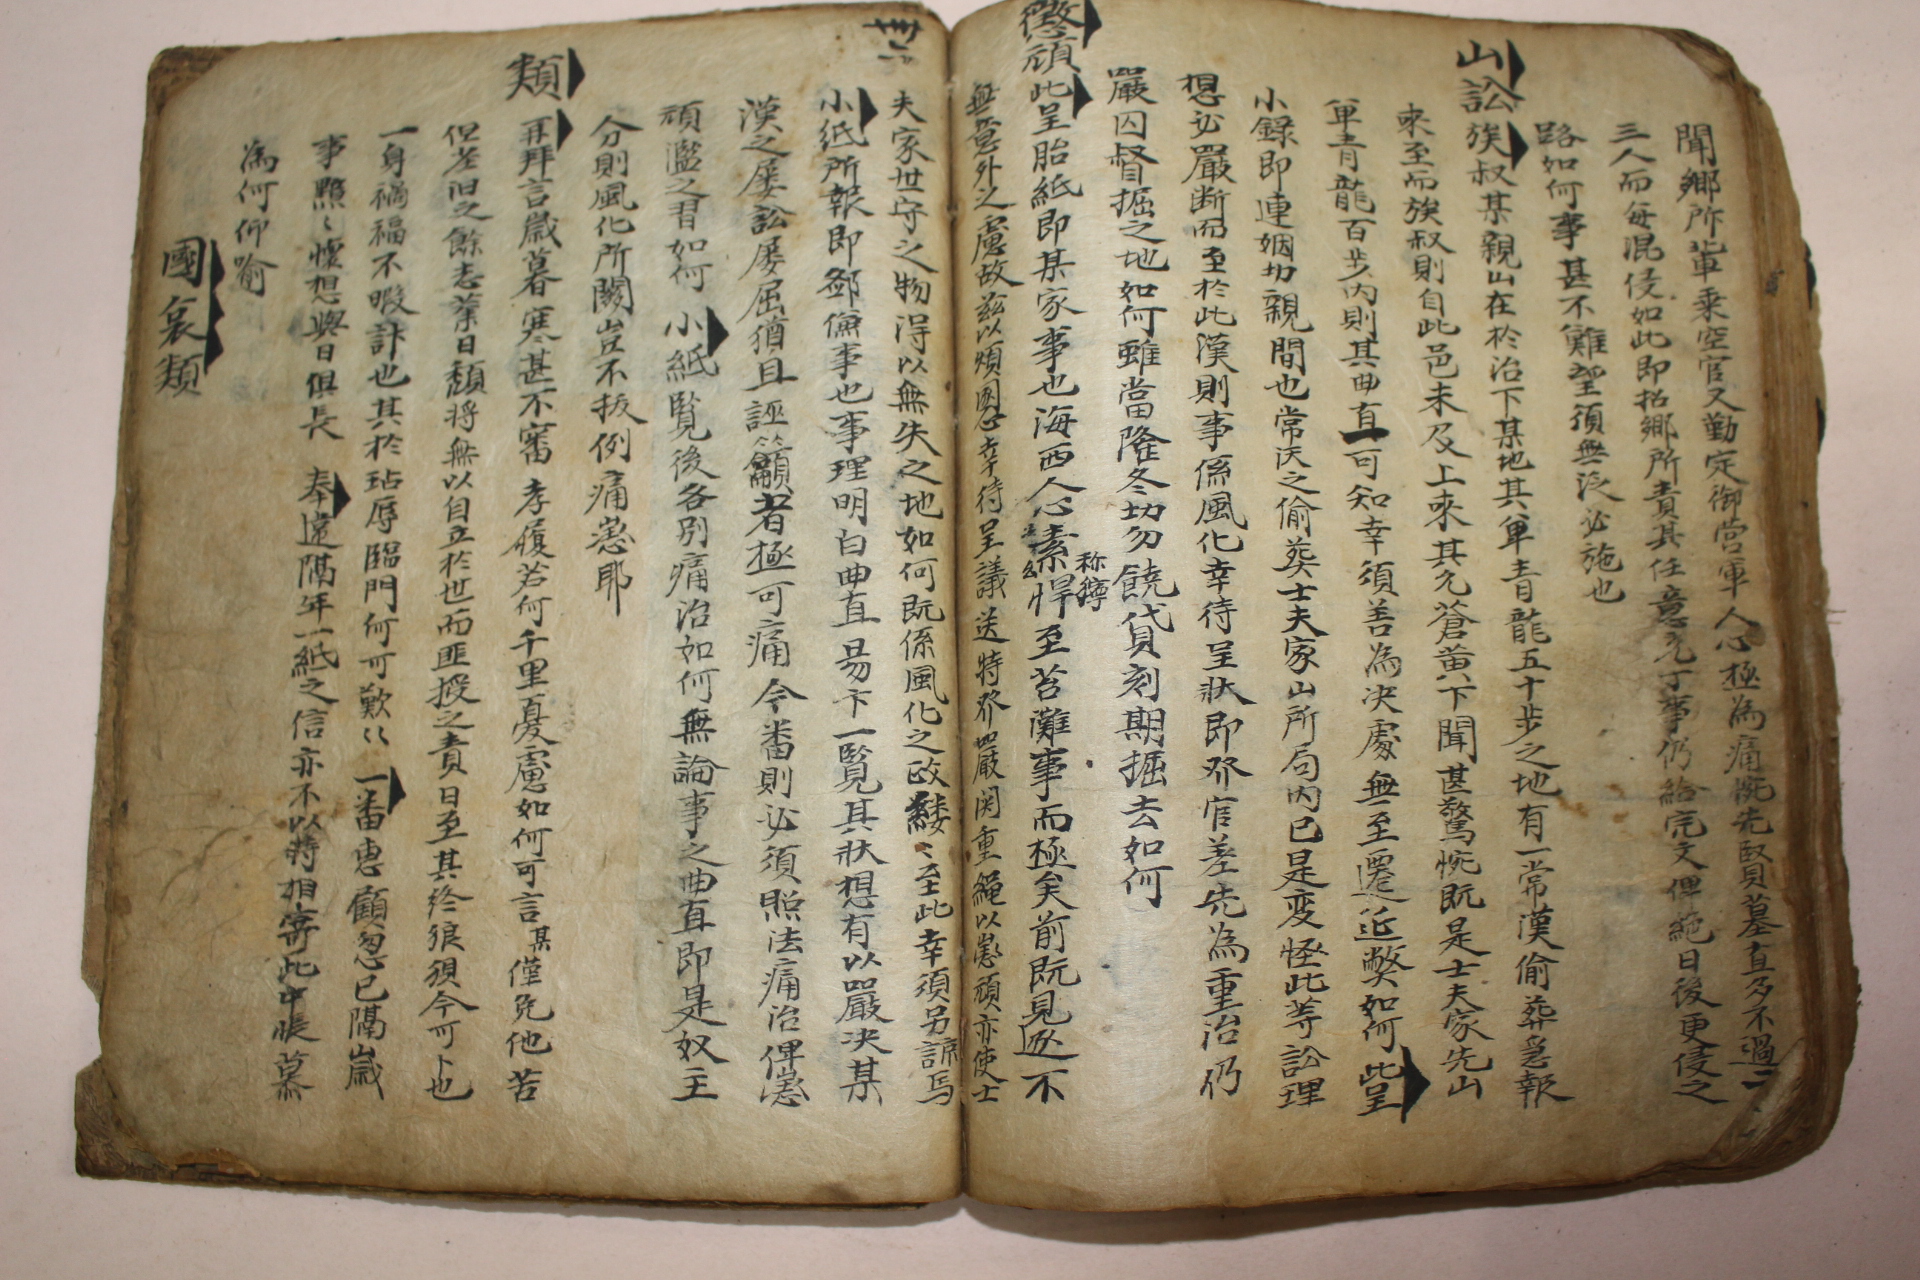 聞鄉所輩乘空官又勤定御營軍人心極為痛慨先賢墓直多不過二
三人而每混侵如此即招鄉所責其任意充丁事仍給完文俾絶日後更侵之
路如何事甚不難望須無泛必施也
山訟
族叔某親山在於治下某地其單青龍五十步之地有一常漢偷葬急報
來至而族叔則自此邑未及上來其兄蒼黃下聞甚驚惋既是士夫家先山
單青龍百步內則其曲直可知幸須善為決處無至遷延弊如何 此呈
小錄即連姻切親間也常漢之偷葬士夫家山所局內已是変怪此等訟理
想必嚴断而至於此漢則事係風化幸待呈狀即發官差先為重治仍
嚴囚督掘之地如何雖當隆冬切勿饒貸刻期掘去如何
懲頑
此呈胎紙即某家事也海西人心素悍至苔灘事而極矣前既見逐不
称
無意外之慮故玆以煩困幸待呈議送特發嚴関重繩以懲頑亦使士
卅六
夫家世守之物得以無失之地如何既係風化之政縷〻至此幸須另諒焉
小紙所報即鄒儂事也事理明白曲直易卞一覧其狀想有以嚴決某
漢之屡訟屡屈猶且誣籲者極可痛今番則必須照法痛治俾懲
頑濫之習如何 小紙覧後各別痛治如何無論事之曲直即是奴主
分則風化所関豈不拔例痛懲耶
類
再拜言歲暮寒甚不審 孝履若何千里憂慮如何可言某僅免他苦
但差旧之餘志業日頹將無以自立於世而匪授之責日至其終狼狽今可卜也
一身禍福不暇計也其於玷辱臨門何可歎〻 一番惠顧忽已隔歲
事點〻懷想與日俱長 奉違隔年一紙之信亦不以時相寄此中悵慕
為何仰喻
國哀類